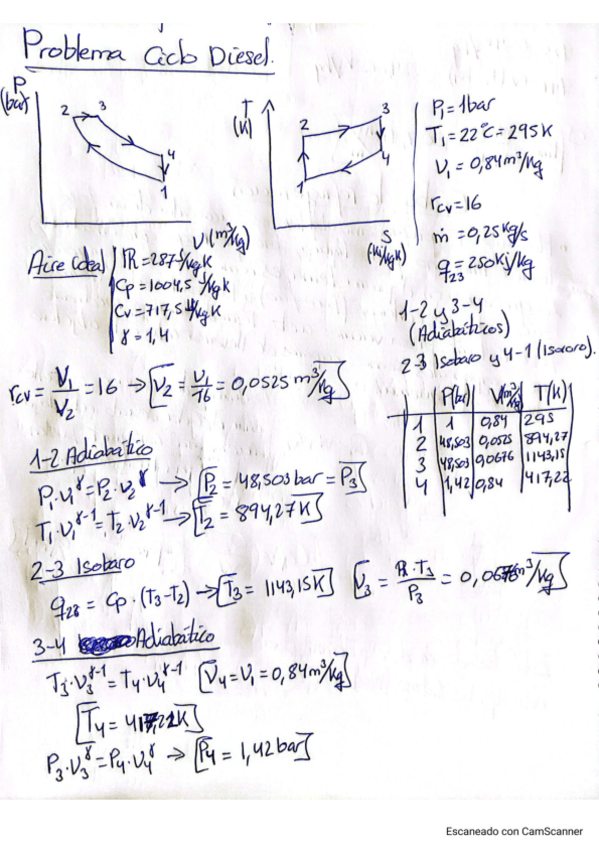 Problema Ciclo Diesel.
P
(bar)
2 3
4
1
V (m³/kg)
T
(K)
3
2
4
1
S
(kJ/kgK)
P₁ = 1 bar
T₁ = 22°C = 295 K
V₁ = 0,84 m³/kg
rcv = 16
ṁ = 0,25 kg/s
q₂₃ = 250 kJ/kg
Aire ideal
R = 287 J/kg K
Cp = 1004,5 J/kg K
Cv = 717,5 J/kg K
γ = 1,4
1-2 y 3-4
(Adiabáticos)
2-3 Isobaro y 4-1 (Isocoro).
rcv = V₁/V₂ = 16 → V₂ = V₁/16 = 0,0525 m³/kg
P(bar) V(m³/kg) T(K)
1 1 0,84 295
2 48,503 0,0525 894,27
3 48,503 0,0676 1143,15
4 1,42 0,84 417,22
1-2 Adiabático
P₁·V₁^γ = P₂·V₂^γ → P₂ = 48,503 bar = P₃
T₁·V₁^γ-1 = T₂·V₂^γ-1 → T₂ = 894,27 K
2-3 Isobaro
q₂₃ = Cp·(T₃-T₂) → T₃ = 1143,15 K V₃ = R·T₃/P₃ = 0,0676 m³/kg
3-4 Adiabático
T₃·V₃^γ-1 = T₄·V₄^γ-1 V₄ = V₁ = 0,84 m³/kg
T₄ = 417,22 K
P₃·V₃^γ = P₄·V₄^γ → P₄ = 1,42 bar
Escaneado con CamScanner